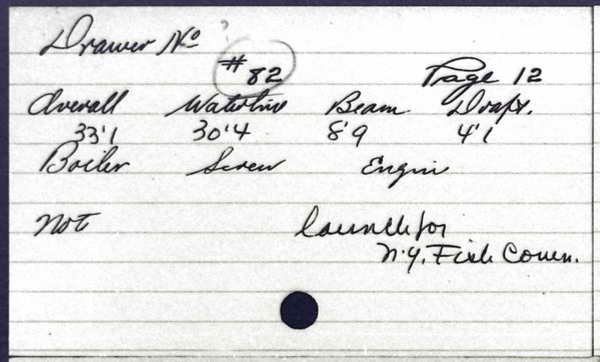 Drawer No ?
#82 Page 12
Overall Waterline Beam Draft.
33'1 30'4 8'9 4'1
Boiler Screw Engine
Not Launch for
N.Y. Fish Comm.